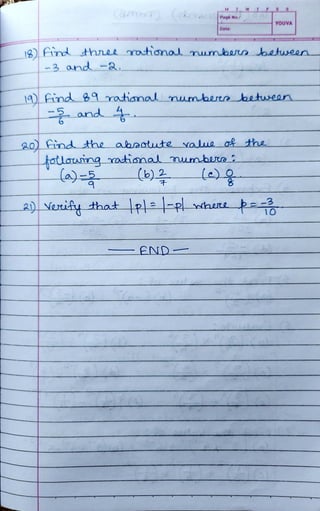 M T W T F S S
Page No.:
Date:
YOUVA
18) Find three rational numbers between
-3 and -2.
19) Find 89 rational numbers between
-5/6 and 4/6.
20) Find the absolute value of the
following rational numbers:
(a) -5/9 (b) 2/7 (c) 0/8.
21) Verify that |p| = |-p| where p = -3/10.
— END —